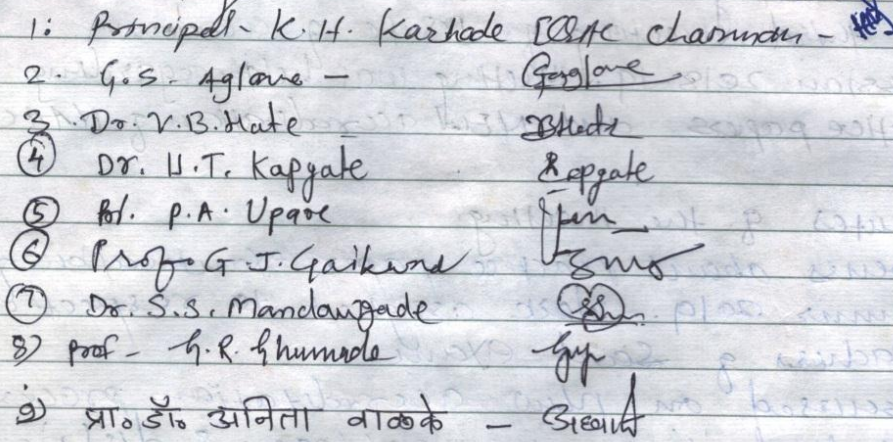 1: Principal - K. H. Karhode IQAC Chairman -
2. G. S. Aglave -
3. Dr. V. B. Hate
④ Dr. H. T. Kapgate Kapgate
⑤ Prof. P. A. Upare
⑥ Prof. G. J. Gaikwad
⑦ Dr. S. S. Mandavgade
8) prof - G. R. Ghumade
९) प्रा० डॉ० अनिता वाळके -